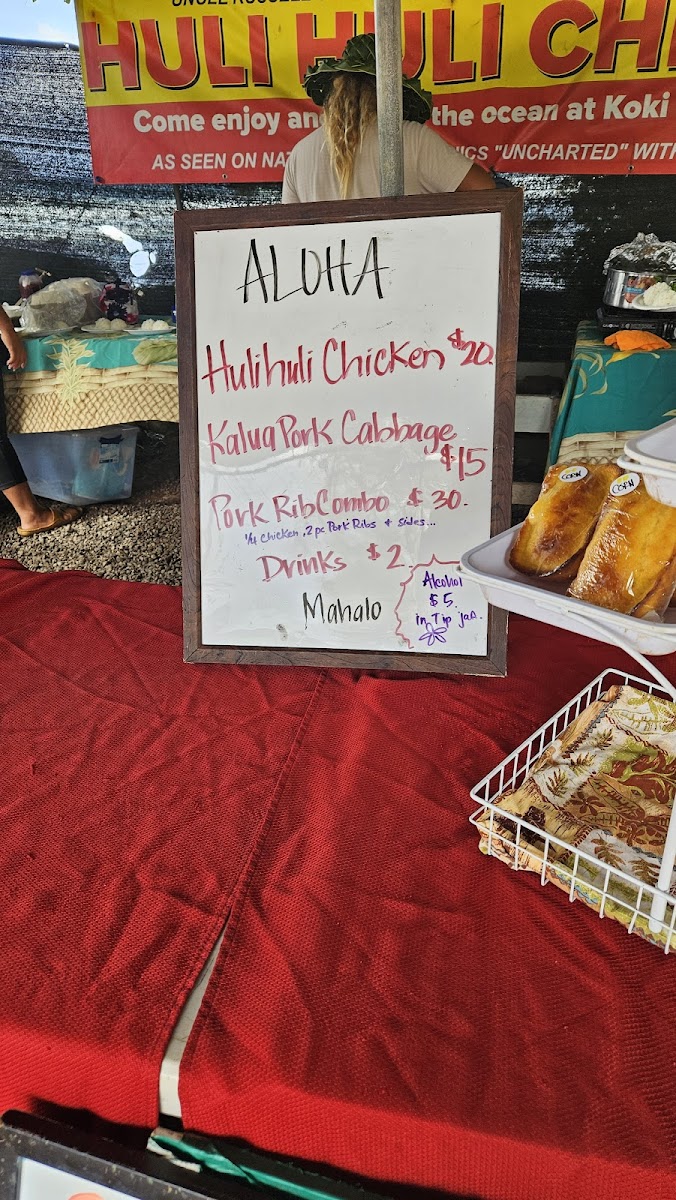 UNCLE RUSSELL
HULI HULI CHI
Come enjoy an the ocean at Koki
AS SEEN ON NAT ICS "UNCHARTED" WITH
ALOHA
Hulihuli Chicken $20.
Kalua Pork Cabbage
$15
Pork Rib Combo $30.
1/4 chicken, 2 pc Pork Ribs + sides...
Drinks $2
Mahalo
Alcohol
$5.
in Tip jar.
CORN
CORN